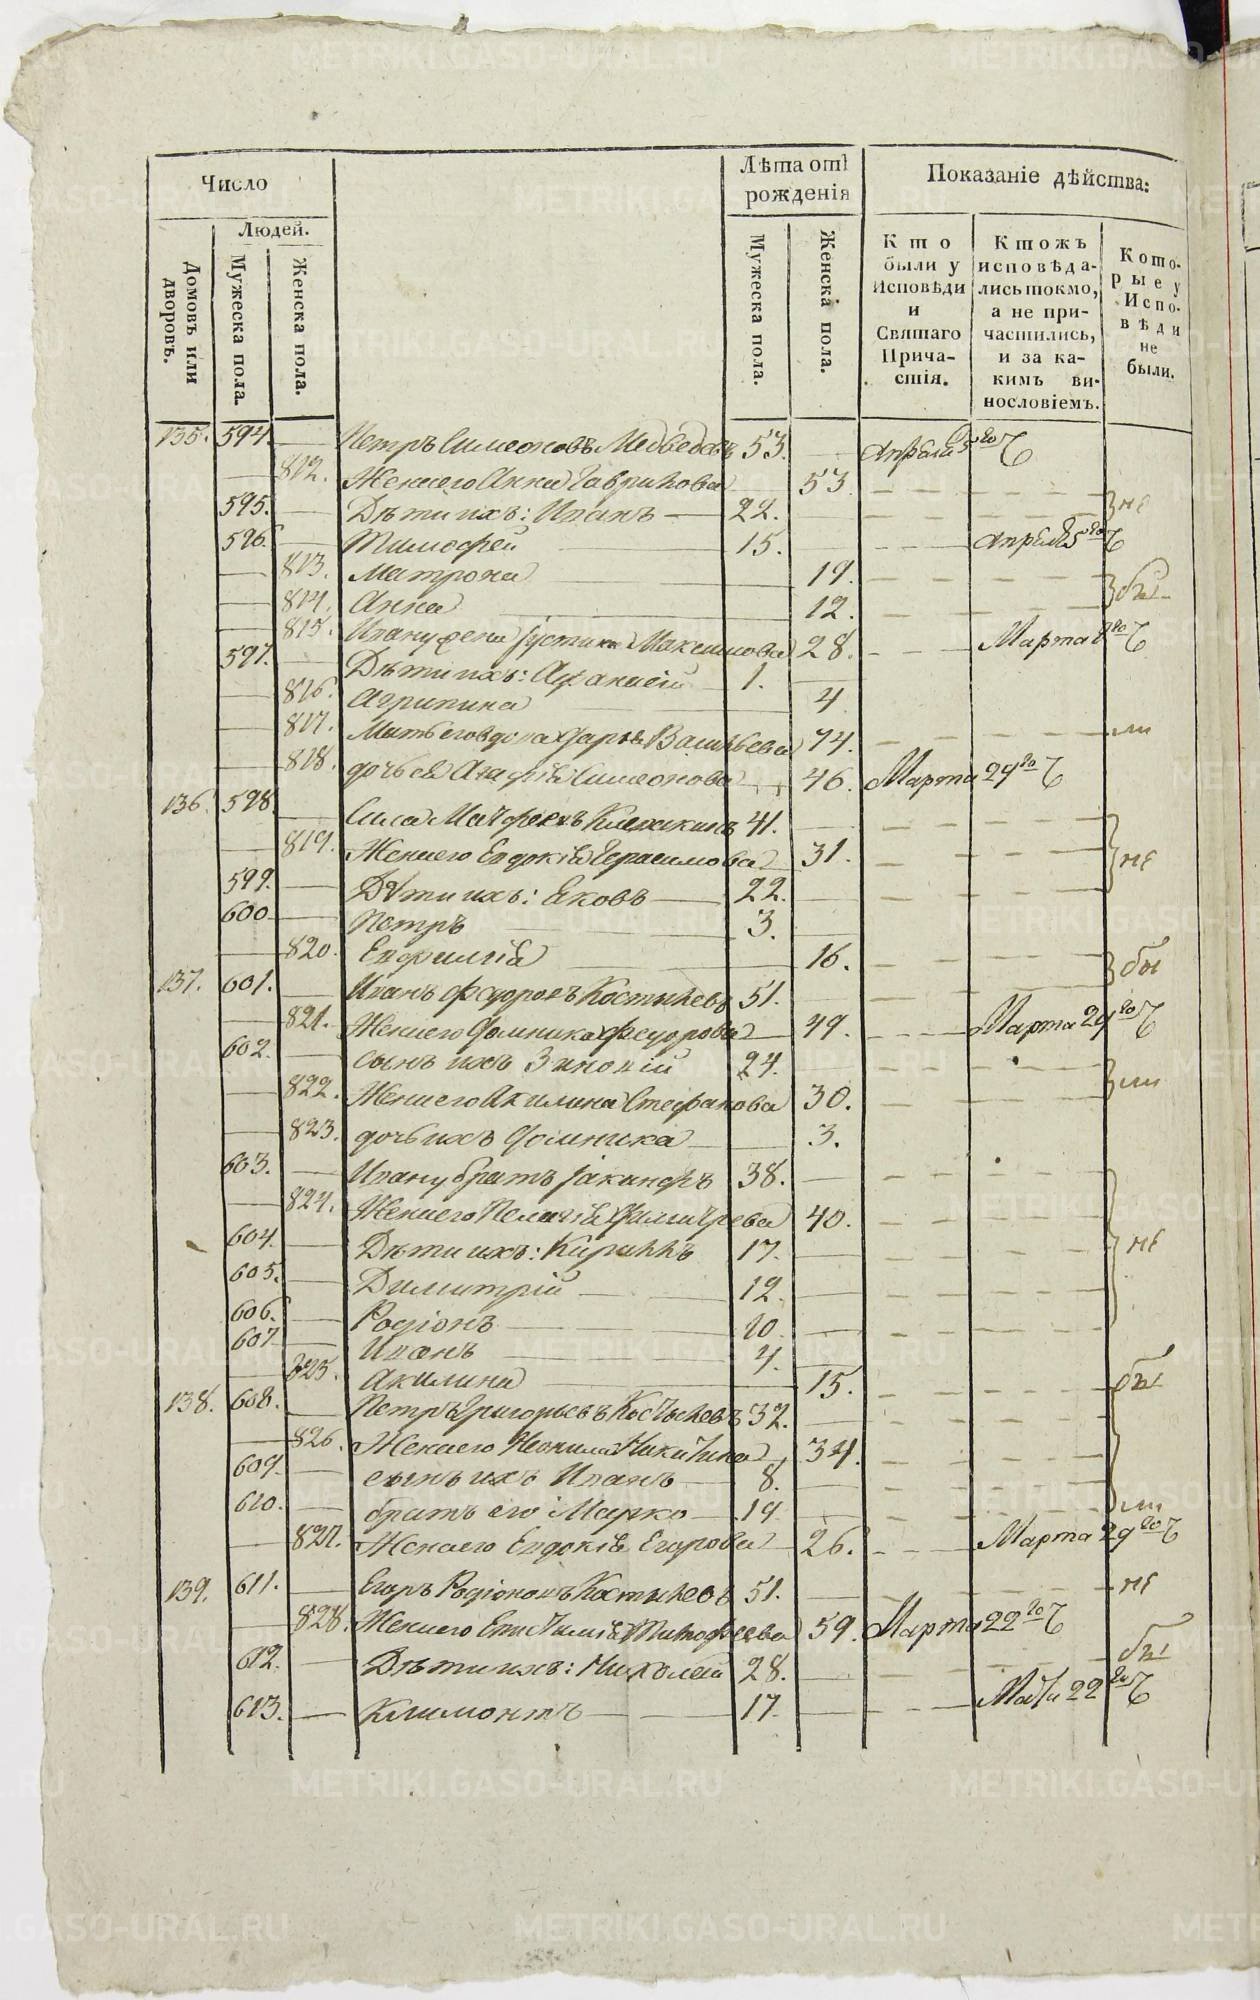 Число
Людей.
Домовъ или дворовъ.
Мужеска пола.
Женска пола.
Лѣта отъ рожденія
Мужеска пола.
Женска пола.
Показаніе дѣйства:
Кто были у Исповѣди и Святаго Причастія.
Ктожъ исповѣдались токмо, а не причастились, и за какимъ винословіемъ.
Которые у Исповѣди не были.
135. 594. — Петръ Симеоновъ Медведевъ 53. Апреля 5го Ч
— 812. Жена его Анна Гаврилова 53
595. — Дѣти ихъ: Иванъ — 22. не
596. — Тимофей 15. Апреля 5го Ч
— 813. Матрона 19.
— 814. Анна 12. бы
— 815. Ивану жена Іустина Максимова 28. Марта 1го Ч
597. — Дѣти ихъ: Афанасій 1.
— 816. Агрипина 4
— 817. Мать его вдова Дарья Васильева 74. ли
— 818. дочь ея Агафія Симеонова 46. Марта 29го Ч
136. 598. Сила 41.
— 819. Жена его Евдокія Герасимова 31. не
599. — Дѣти ихъ: Яковъ — 22.
600 — Петръ 3.
— 820. Евфимія 16. бы
137. 601. — Иванъ Феодоровъ Костылевъ 51.
— 821. Жена его Домника Феодорова 49. Марта 29го Ч
602. — сынъ ихъ Зиновій 24. ли
— 822. Жена его Акилина Стефанова 30.
— 823. дочь ихъ Домника 3.
603. — Ивану братъ Іакинфъ 38.
— 824. Жена его Пелагія Димитрева 40.
604. — Дѣти ихъ: Кириллъ 17. не
605. — Димитрій — 12.
606. — Родіонъ — 10.
607 — Иванъ — 4.
— 825. Акилина 15. бы
138. 608. — Петръ Григорьевъ Костылевъ 32.
— 826. Жена его Неонила Никитина 34.
609. — сынъ ихъ Иванъ — 8.
610. — братъ его Марко — 19 ли
— 827. Жена его Евдокія Егорова 26. Марта 29го Ч
139. 611. — Егоръ Родіоновъ Костылевъ 51. не
— 828. Жена его Тимофеева 59. Марта 22го Ч
612. — Дѣти ихъ: Николай 28. бы
613. — Климонтъ — 17. 22го Ч
METRIKI.GASO-URAL.RU